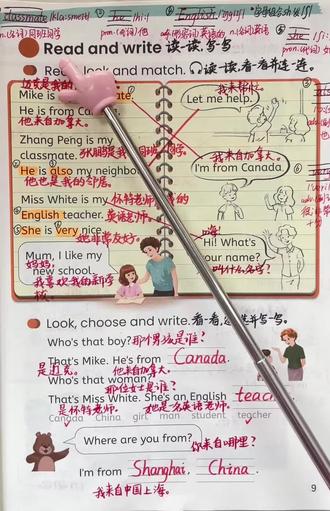 classmate /klɑːsmeɪt/ he /hiː/ English
n.(名词)同班同学 pron.(代词)他
Read and write 读一读,写一写
Read, look and match. 读一读,看一看并连一连。
这是我的
Mike is
He is from
他来自加拿大。
Zhang Peng is my
classmate. 张鹏是我
He is also my neighbour
他也是我的邻居。
Miss White is my 怀特老师
English teacher. 英语老师。
She is very nice.
她非常友好。
Mum, I like my
new school.
妈妈,
我喜欢我的新学校
Let me help.
我来帮忙。
我来自加拿大。
I'm from Canada.
嗨!
Hi! What's
your name?
叫什么名字?
Look, choose and write. 看一看,选一选并写一写。
Who's that boy? 那个男孩是谁?
That's Mike. He's from Canada.
是迈克。 他来自加拿大。
Who's that woman?
那位女士是谁?
That's Miss White. She's an English teac
是怀特老师。 她是一名英语老师。
Canada China girl man student teacher
Where are you from?
你来自哪里?
I'm from Shanghai, China.
我来自中国上海。
9